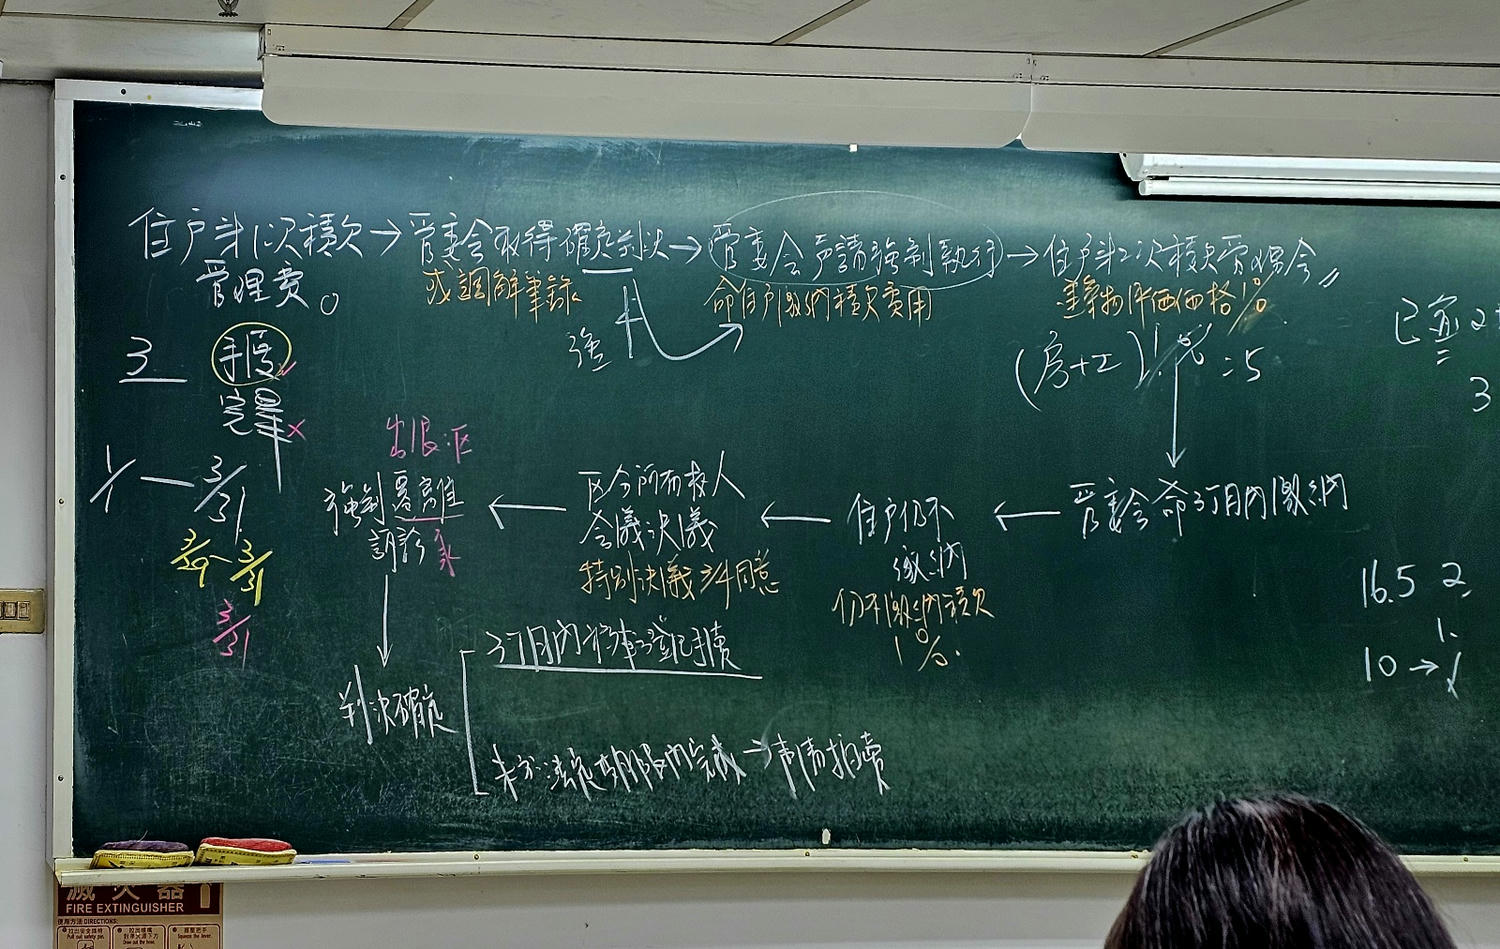 住戶第1次積欠→管委會取得確定判決→管委會声請強制執行→住戶第2次積欠管理合
管理費。
或調解筆錄
命住戶繳納積欠費用
建築物評価価格1%
強
3
手續
完畢
(房+工)1% =5
已
3
1/1 — 3/31
3/29~3/31
3/31
出限 区
強制遷離
訴訟
区分所有权人
会議決議
特別決議3/4同意
住戶仍不
繳納
仍不繳納積欠
1%.
管委会命3个月内繳納
16.5 2.
1.
10→1
判決確定
3个月内 移轉登記手續
未于法定期限内完成→声請拍賣
滅火器
FIRE EXTINGUISHER
使用方法 DIRECTIONS: